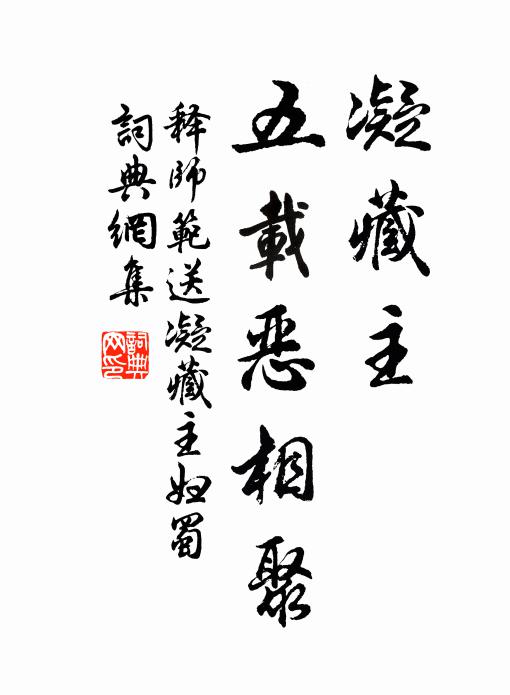 凝藏主
五載恶相聚
释師範送凝藏主归蜀
詞典網集
詞典
网印